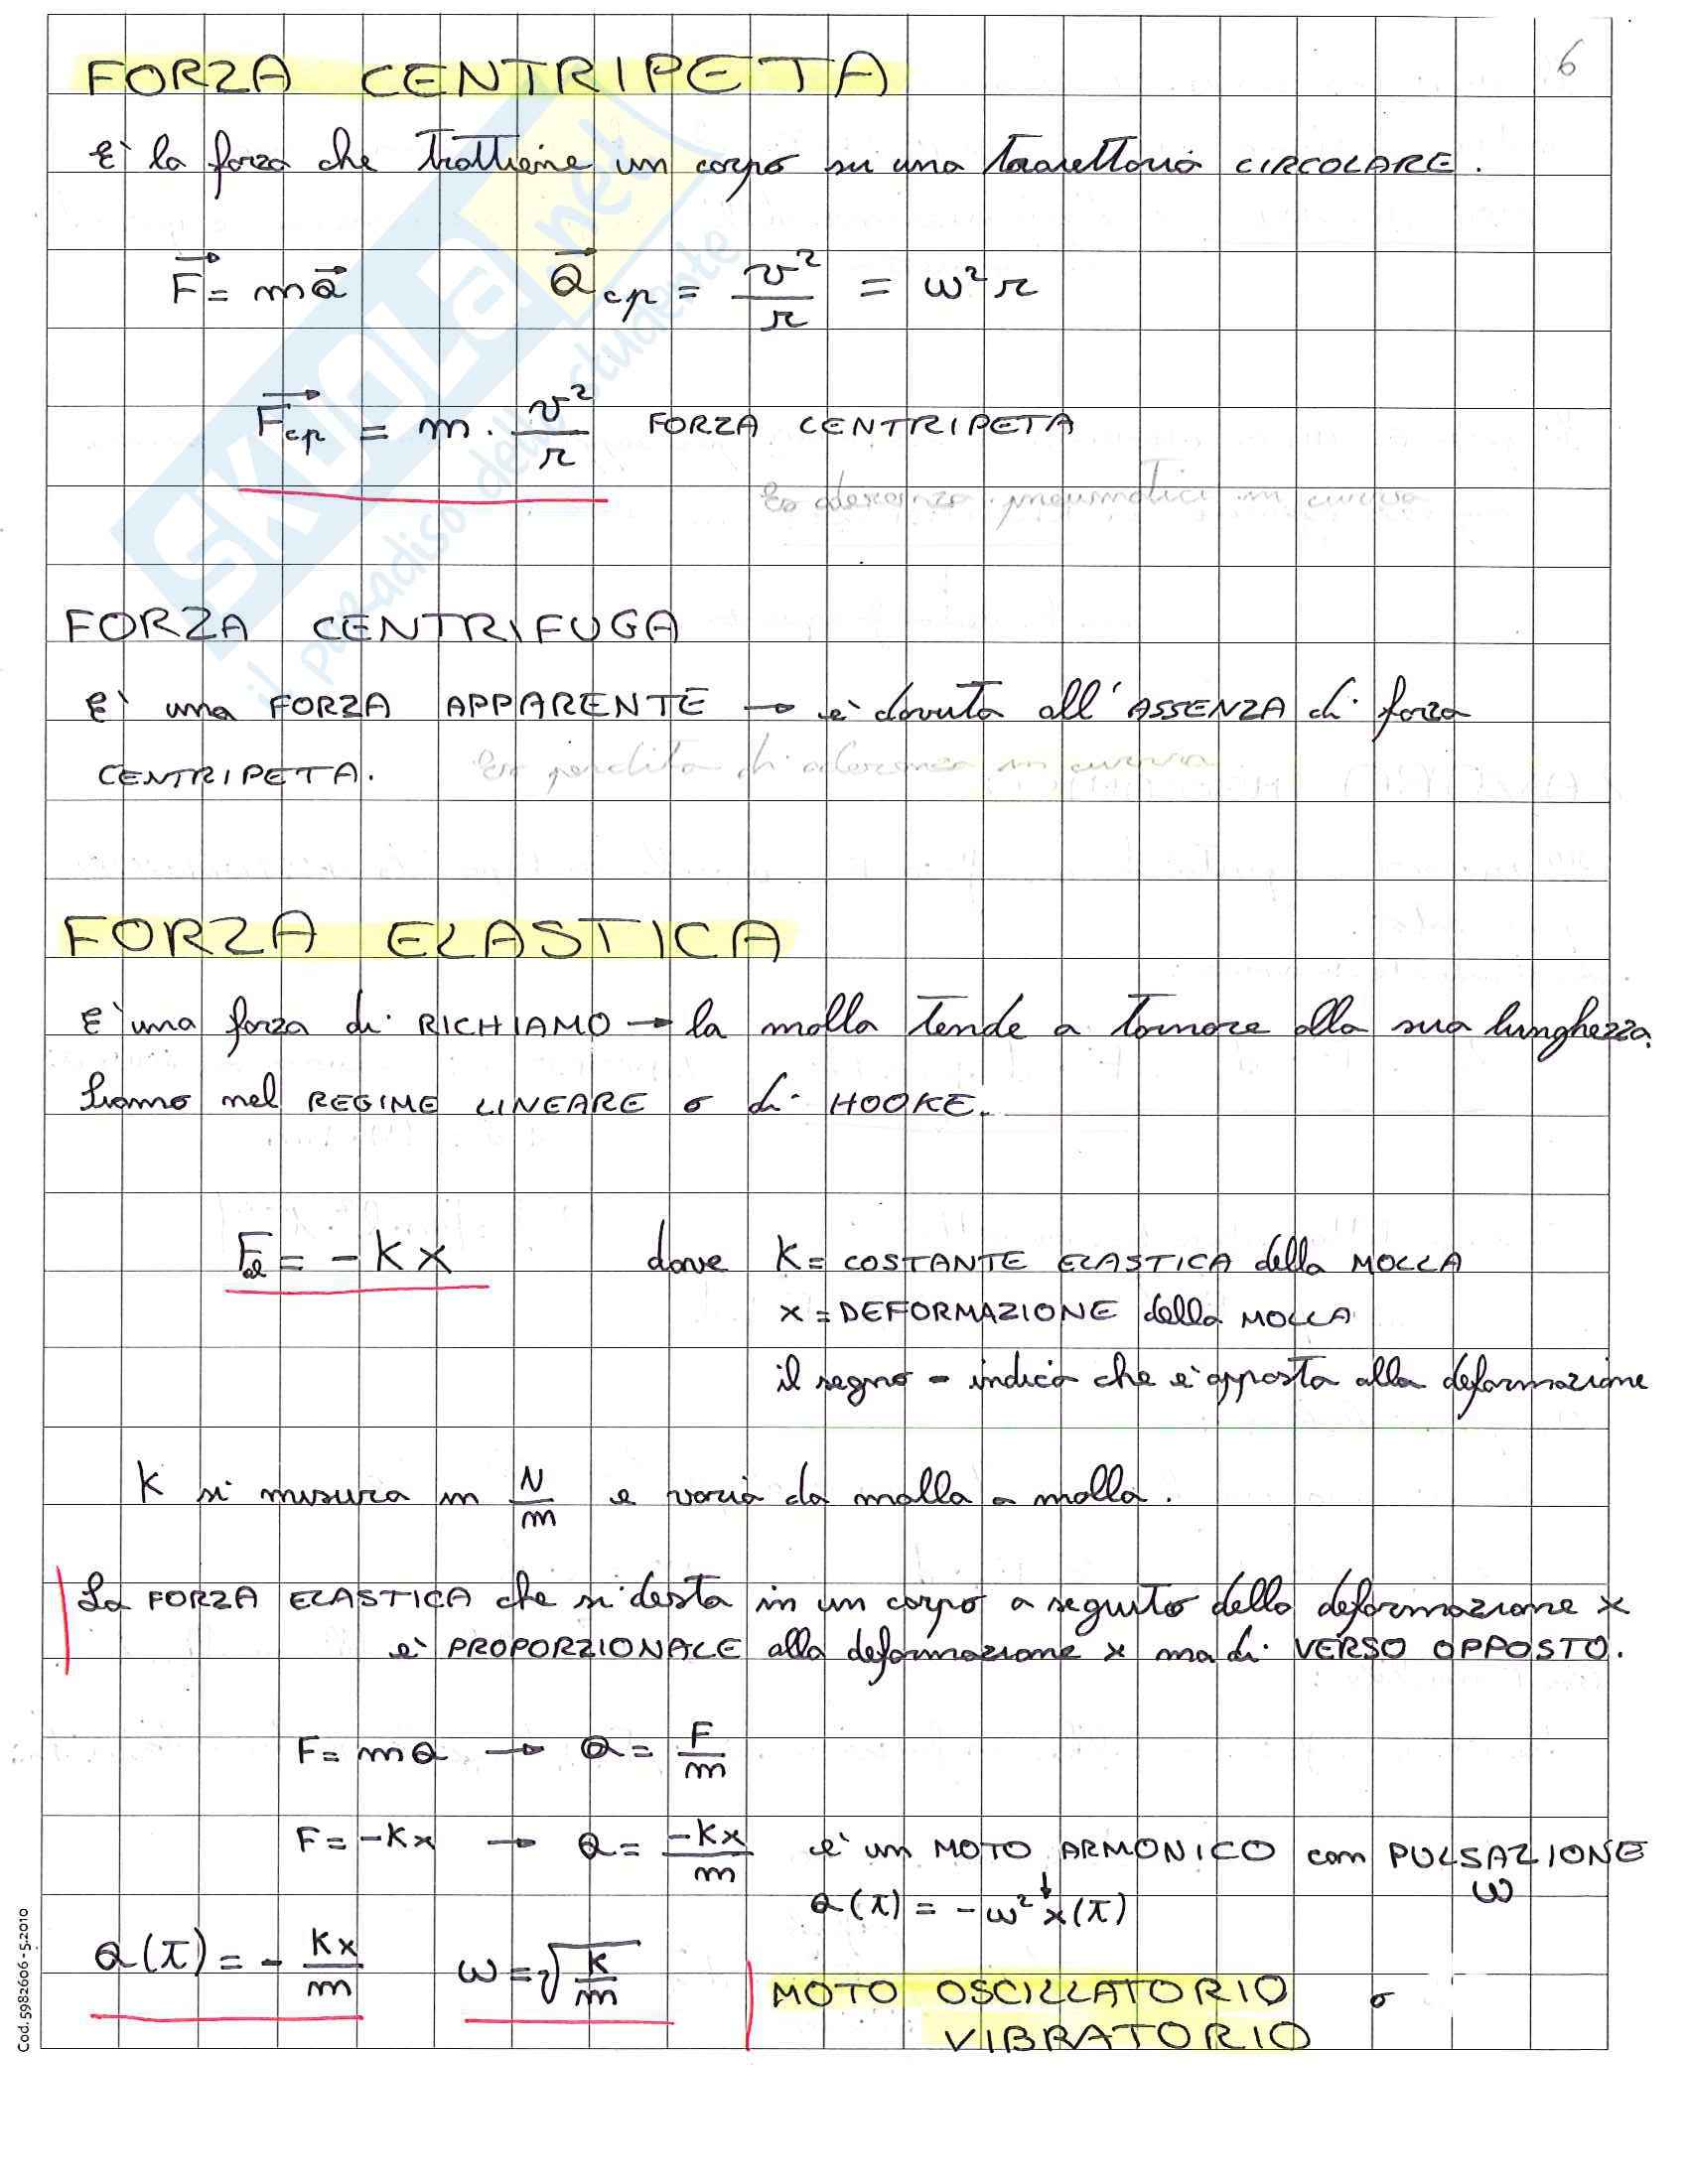 6
FORZA CENTRIPETA
E' la forza che trattiene un corpo su una traiettoria CIRCOLARE.
F = ma    a cp = v²/r = ω²r
Fcp = m · v²/r FORZA CENTRIPETA
Es aderenza pneumatici in curva
FORZA CENTRIFUGA
E' una FORZA APPARENTE → è dovuta all'ASSENZA di forza
CENTRIPETA. Es perdita di aderenza in curva
FORZA ELASTICA
E' una forza di RICHIAMO → la molla tende a tornare alla sua lunghezza.
Siamo nel REGIME LINEARE o di HOOKE.
Fel = -Kx dove K = COSTANTE ELASTICA della MOLLA
x = DEFORMAZIONE della MOLLA
il segno - indica che è opposta alla deformazione
K si misura in N/m e varia da molla a molla.
La FORZA ELASTICA che si desta in un corpo a seguito della deformazione x
è PROPORZIONALE alla deformazione x ma di VERSO OPPOSTO.
F = ma → a = F/m
F = -Kx → a = -Kx/m è un MOTO ARMONICO con PULSAZIONE
ω
a(t) = -ω² x(t)
a(t) = - Kx/m    ω = √(k/m)
MOTO OSCILLATORIO o
VIBRATORIO
SKUOLA.net
il paradiso dello studente
Cod. 5982606 - 5.2010